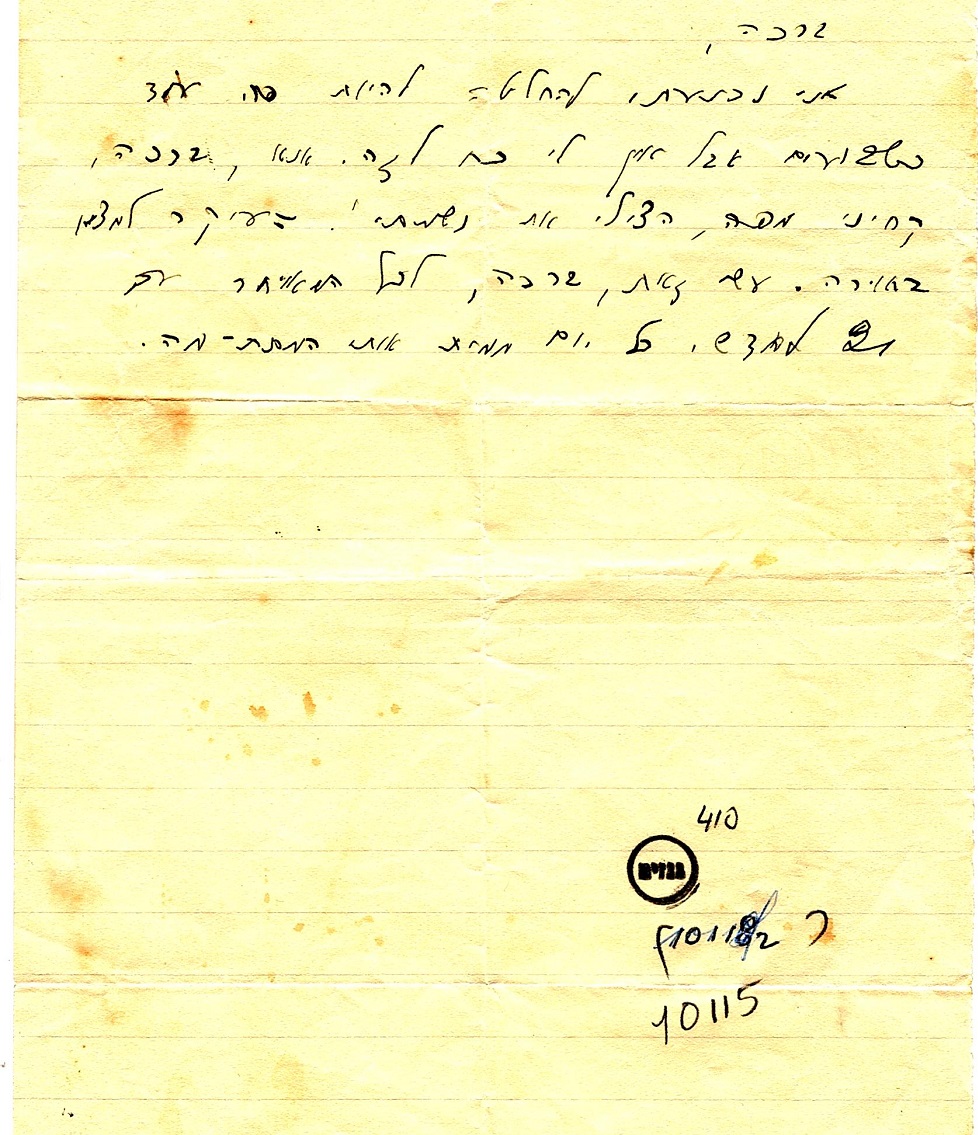 ברכה,
אני נכנעתי להחלטה להיות פה עוד
כשבועיים אבל אין לי כח לזה. אנא, ברכה,
קחיני מפה, הצילי את נשמתי! העיקר למצוא
באוירה. עשי זאת, ברכה, לכל המאוחר עד
21 לחדש. כל יום ממית אותי המות-מה.
410
גנזים
10115